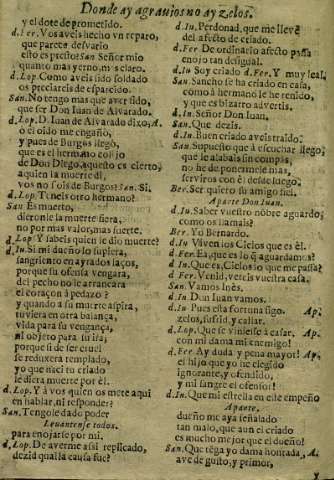 Donde ay agrauios no ay zelos.
y el dote de prometido.
d. Fer. Vos aveis hecho vn reparo,
que parece desvario
esto es presto San. Señor mio
quinto mas yerno, mas claro.
d. Lop. Como aveis sido soldado
os preciareis de esparcido.
San. No tengo mas que aver sido,
que ser Don Iuan de Alvarado.
d. Lop. D. Iuan de Alvarado dixo, A.
ò el oìdo me engañò,
y pues de Burgos llegò,
que es el hermano
de Don Diego, aquesto es cierto,
aquien la muerte dì,
vos no sois de Burgos? San. Si.
d. Lop. Teneis otro hermano?
San. Es muerto,
dieronle la muerte fiera,
no por mas valor, mas suerte.
d. Lop. Y sabeis quien le dio muerte?
d. In. Si mi dueño lo supiera,
sangriento en ayrados laços,
porque su ofensa vengara,
del pecho no le arrancara
el coraçon à pedaço?
y quando à su muerte aspira,
tuviera en otra balança,
vida para su vengança,
ni objeto para su ira;
porque si de ser cruel
se reduxera templado,
yo que naci tu criado
le diera muerte por èl.
d. Lop. Y à vos quien os mete aqui
en hablar, ni responder?
San. Tengole dado poder
Leuantense todos.
para enojarse por mi.
d. Lop. De averme assi replicado,
dezid qual la causa fue?
d. In. Perdonad, que me llevè
del afecto de criado.
d. Fer. De ordinario afecto passa
enojo tan desigual.
d. In. Soy criado d. Fer. Y muy leal,
San. Sancho se ha criado en casa,
como à hermano le he tenido,
y que es bizarro advertis.
d. In. Señor Don Iuan.
San. Que dezis.
d. In. Buen criado aveis traìdo.
San. Supuesto que à escuchar llego,
que le alabais sin compàs,
no he de ponermele mas,
serviros con èl desde luego.
Ber. Ser quiero su amigo fiel.
Aparte Don Iuan.
d. In. Saber vuestro nõbre aguardo,
como os llamais?
Ber. Yo Bernardo.
d. In. Viven los Cielos que es èl.
d. Fer. Ea, que es lo q̃ aguardamos?
d. In. Que es, Cielos lo que me passa?
d. Fer. Venid, vereis vuestra casa.
San. Vamos Inès.
d. In. Don Iuan vamos.
d. In. Pues esta fortuna sigo. Ap.
zelos, sufrid, y callar.
d. Lop. Que se viniesse à casar, Ap.
con mi dama mi enemigo!
d. Fer. Ay duda y pena mayor! Ap.
el hijo que yo he elegido
ignorante, y ofendido,
y mi sangre el ofensor!
d. In. Que mi estrella en este empeño
Aparte.
dueño me aya señalado
tan malo, que aun el criado
es mucho mejor que el dueño!
San. Que tẽga yo dama honrada, A.
ave de gusto, y primor,